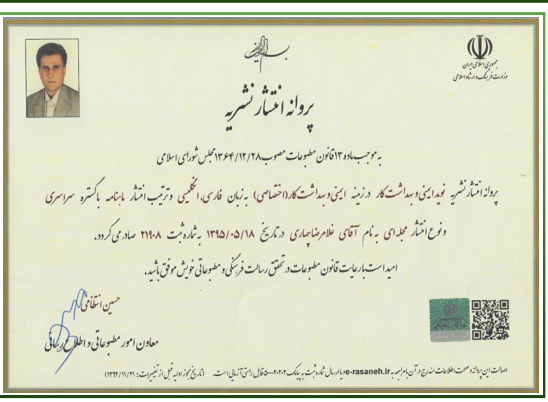 جمهوری اسلامی ایران
وزارت فرهنگ و ارشاد اسلامی
پروانه انتشار نشریه
به موجب ماده ۱۳ قانون مطبوعات مصوب ۱۳۶۴/۱۲/۲۸ مجلس شورای اسلامی
پروانه انتشار نشریه نوید ایمنی و بهداشت کار در زمینه ایمنی و بهداشت کار (اختصاصی) به زبان فارسی، انگلیسی و ترتیب انتشار ماهنامه با گستره سراسری
و نوع انتشار مجله‌ای به نام آقای غلامرضا چهاری در تاریخ ۱۳۹۵/۰۵/۱۸ به شماره ثبت ۲۱۹۰۸ صادر می گردد.
امید است با رعایت قانون مطبوعات در تحقق رسالت فرهنگی و مطبوعاتی خویش موفق باشید.
حسین انتظامی
معاون امور مطبوعاتی و اطلاع رسانی
اصالت این پروانه و صحت اطلاعات مندرج در آن با مراجعه به e-rasaneh.ir و یا ارسال شماره ثبت به پیامک ۵۰۰۰۲۰۲۰۲ قابل راستی آزمایی است. (تاریخ مجوز اولیه قبل از تغییرات: ۱۳۹۲/۱۱/۲۱)